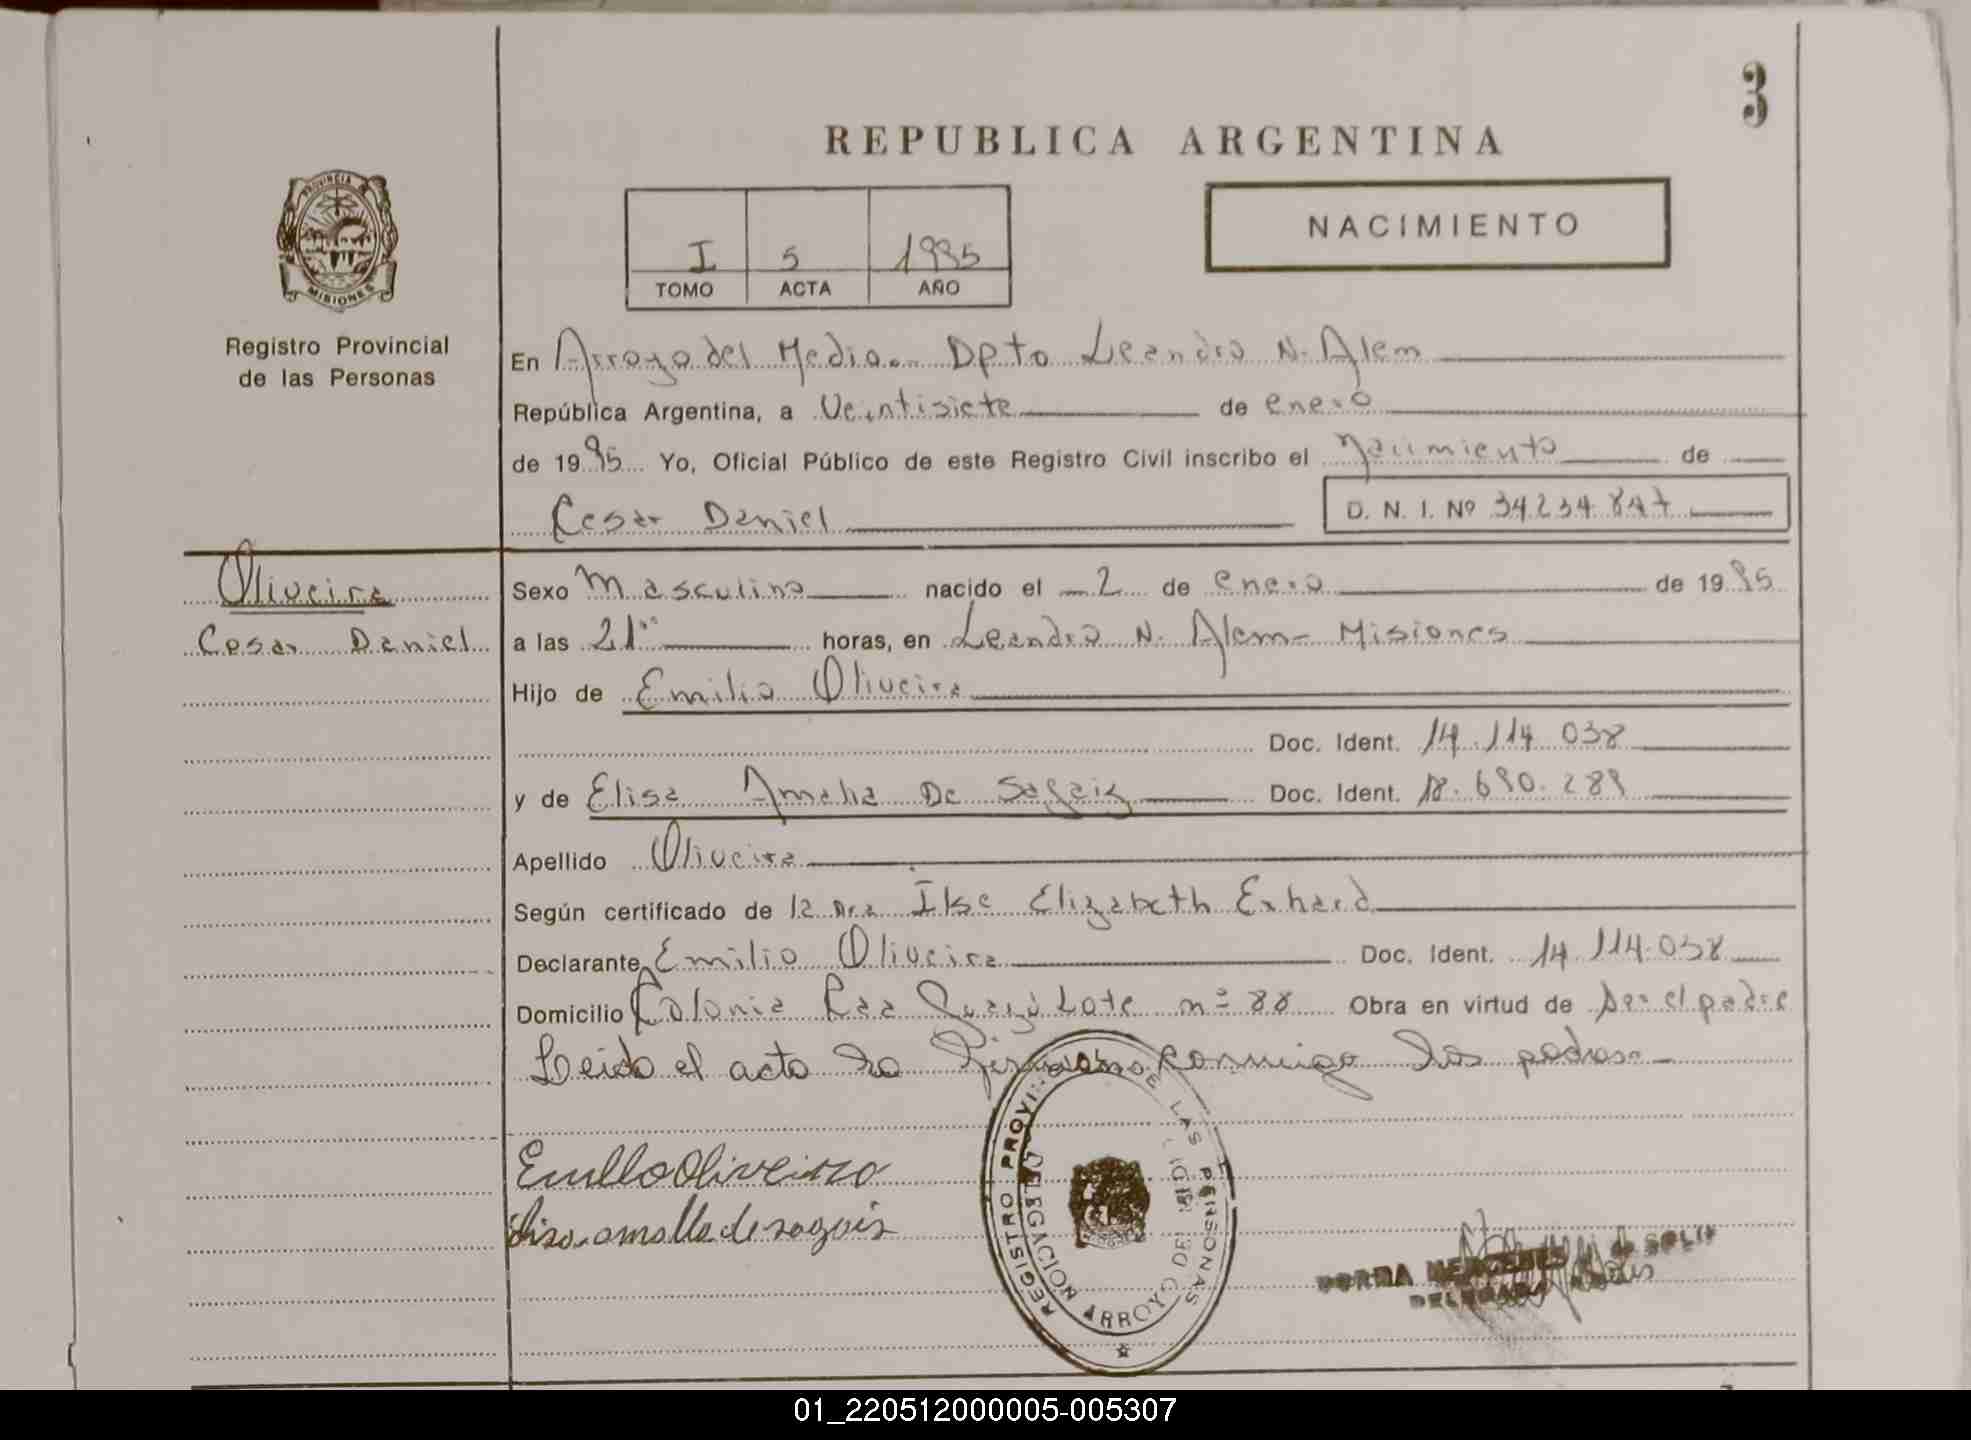 3
REPUBLICA ARGENTINA
PROVINCIA
MISIONES
Registro Provincial
de las Personas
I 5 1995
TOMO ACTA AÑO
NACIMIENTO
En Arroyo del Medio - Dpto Leandro N. Alem
República Argentina, a Veintisiete de enero
de 1995 Yo, Oficial Público de este Registro Civil inscribo el Nacimiento de
Cesar Daniel D. N. I. Nº 34234847
Oliveira
Cesar Daniel
Sexo Masculino nacido el 2 de enero de 1995
a las 21 horas, en Leandro N. Alem - Misiones
Hijo de Emilio Oliveira
Doc. Ident. 14.114 038
y de Elisa Amalia De Doc. Ident. 18.690.289
Apellido Oliveira
Según certificado de la Dra Ilse Elizabeth Exhard
Declarante Emilio Oliveira Doc. Ident. 14.114.038
Domicilio Colonia Caa Guazú Lote nº 88 Obra en virtud de Ser el padre
Leida el acta la firman conmigo los padres -
REGISTRO DE LAS PERSONAS
DELEGACION ARROYO DEL MEDIO
MERCEDES
DELEGADA
01_220512000005-005307